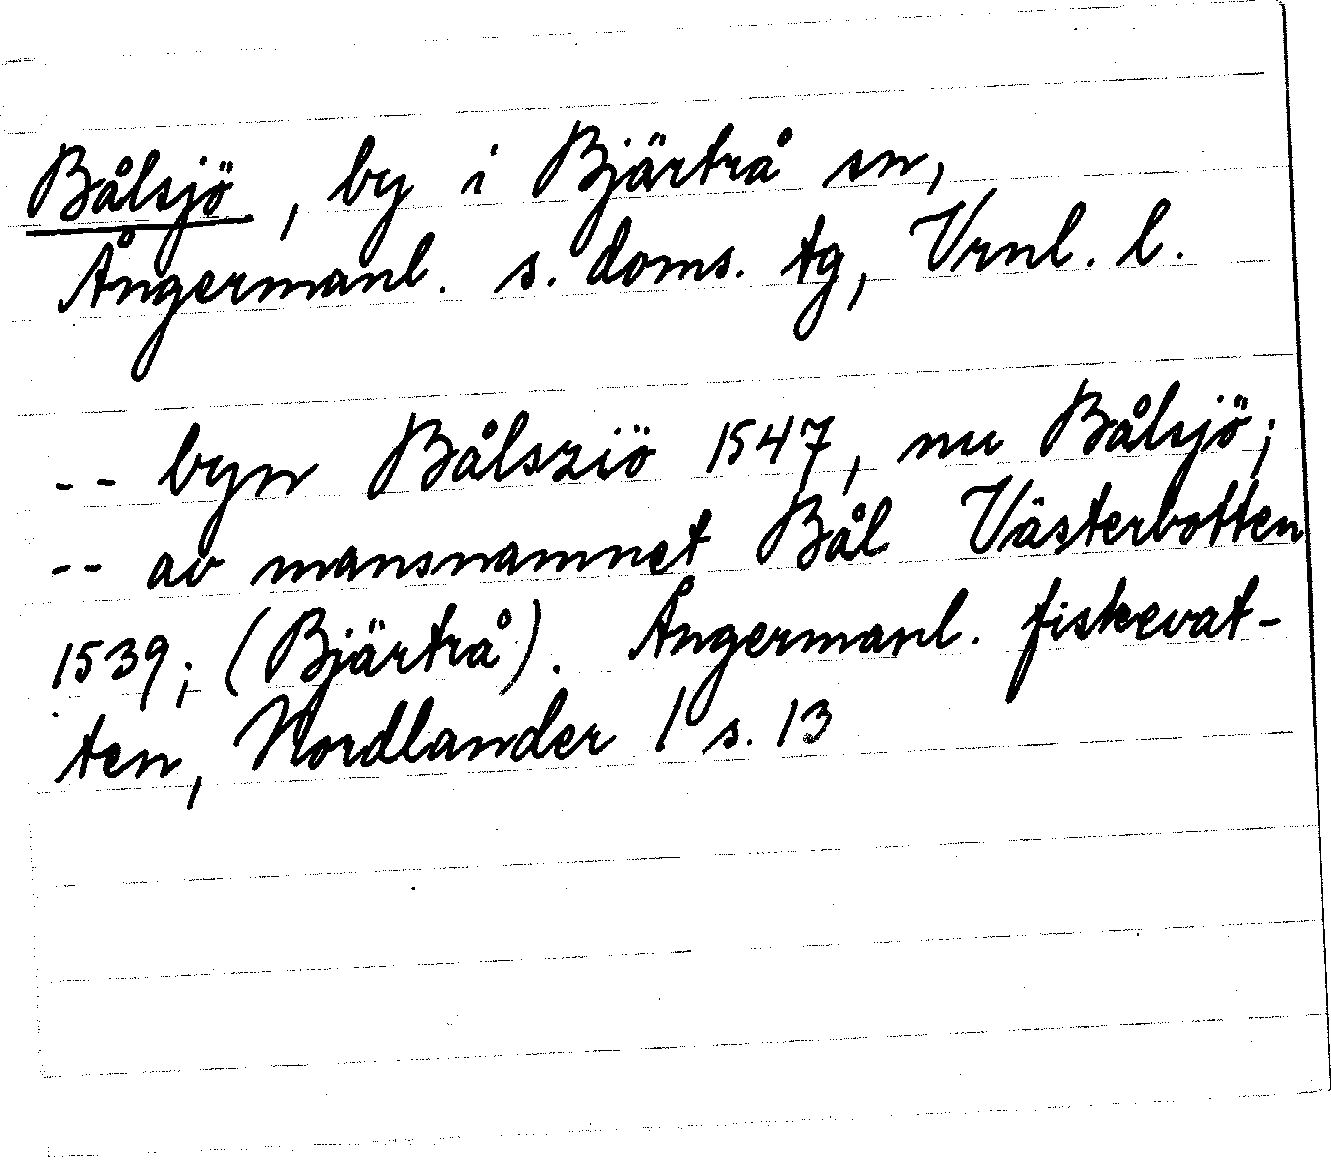 Bålsjö, by i Bjärtrå sn,
Ångermanl. s. doms. tg, Vrnl. l.
-- byn Bålsziö 1547, nu Bålsjö;
-- av mansnamnet Bål Västerbotten
1539; (Bjärtrå). Ångermanl. fiskevat-
ten, Nordlander 1 s. 13